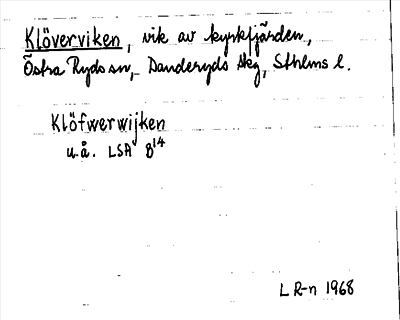 Klöverviken, vik av kyrkfjärden,
Östra Ryds sn, Danderyds skg, Sthlms l.
Klöfwerwijken
u.å. LSA B14
L R-n 1968